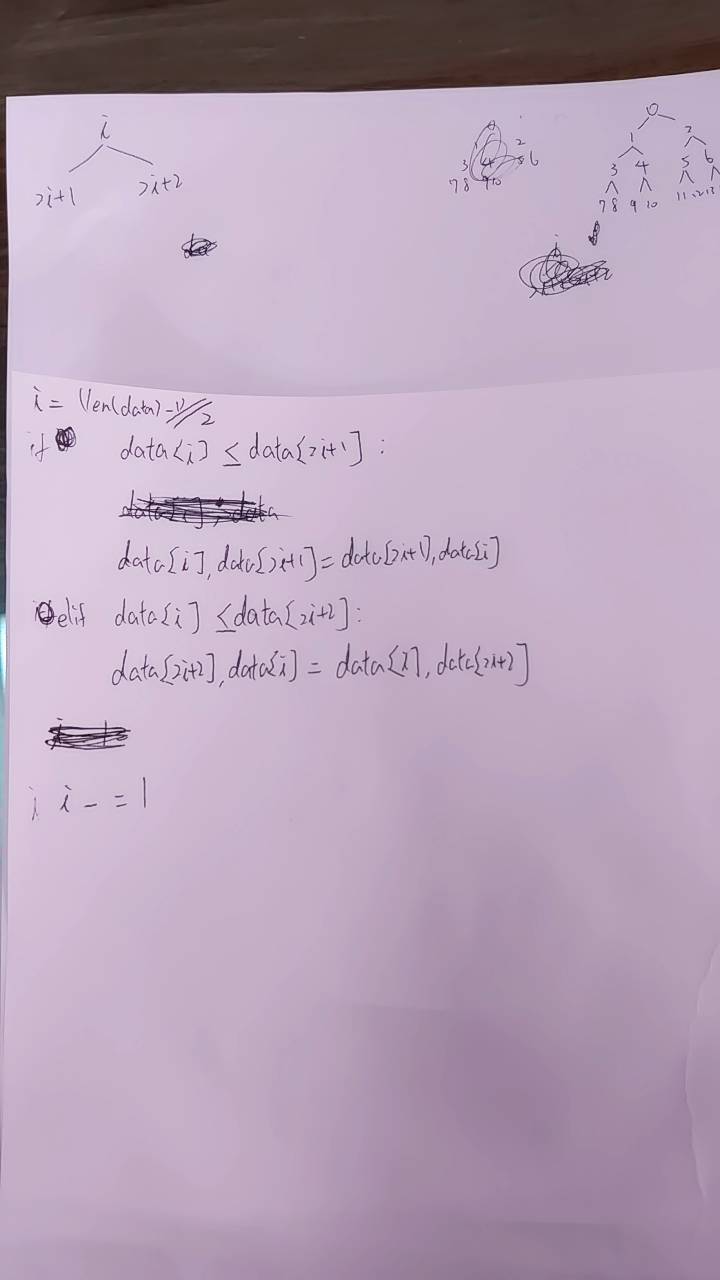 i
2i+1 2i+2
0
2
3 4 5 6
7 8 9 10
0
1 2
3 4 5 6
7 8 9 10 11 12 13
i
i = (len(data)-1)//2
if data[i] ≤ data[2i+1]:
data[i], data[2i+1] = data[2i+1], data[i]
elif data[i] ≤ data[2i+2]:
data[2i+2], data[i] = data[i], data[2i+2]
i i -= 1